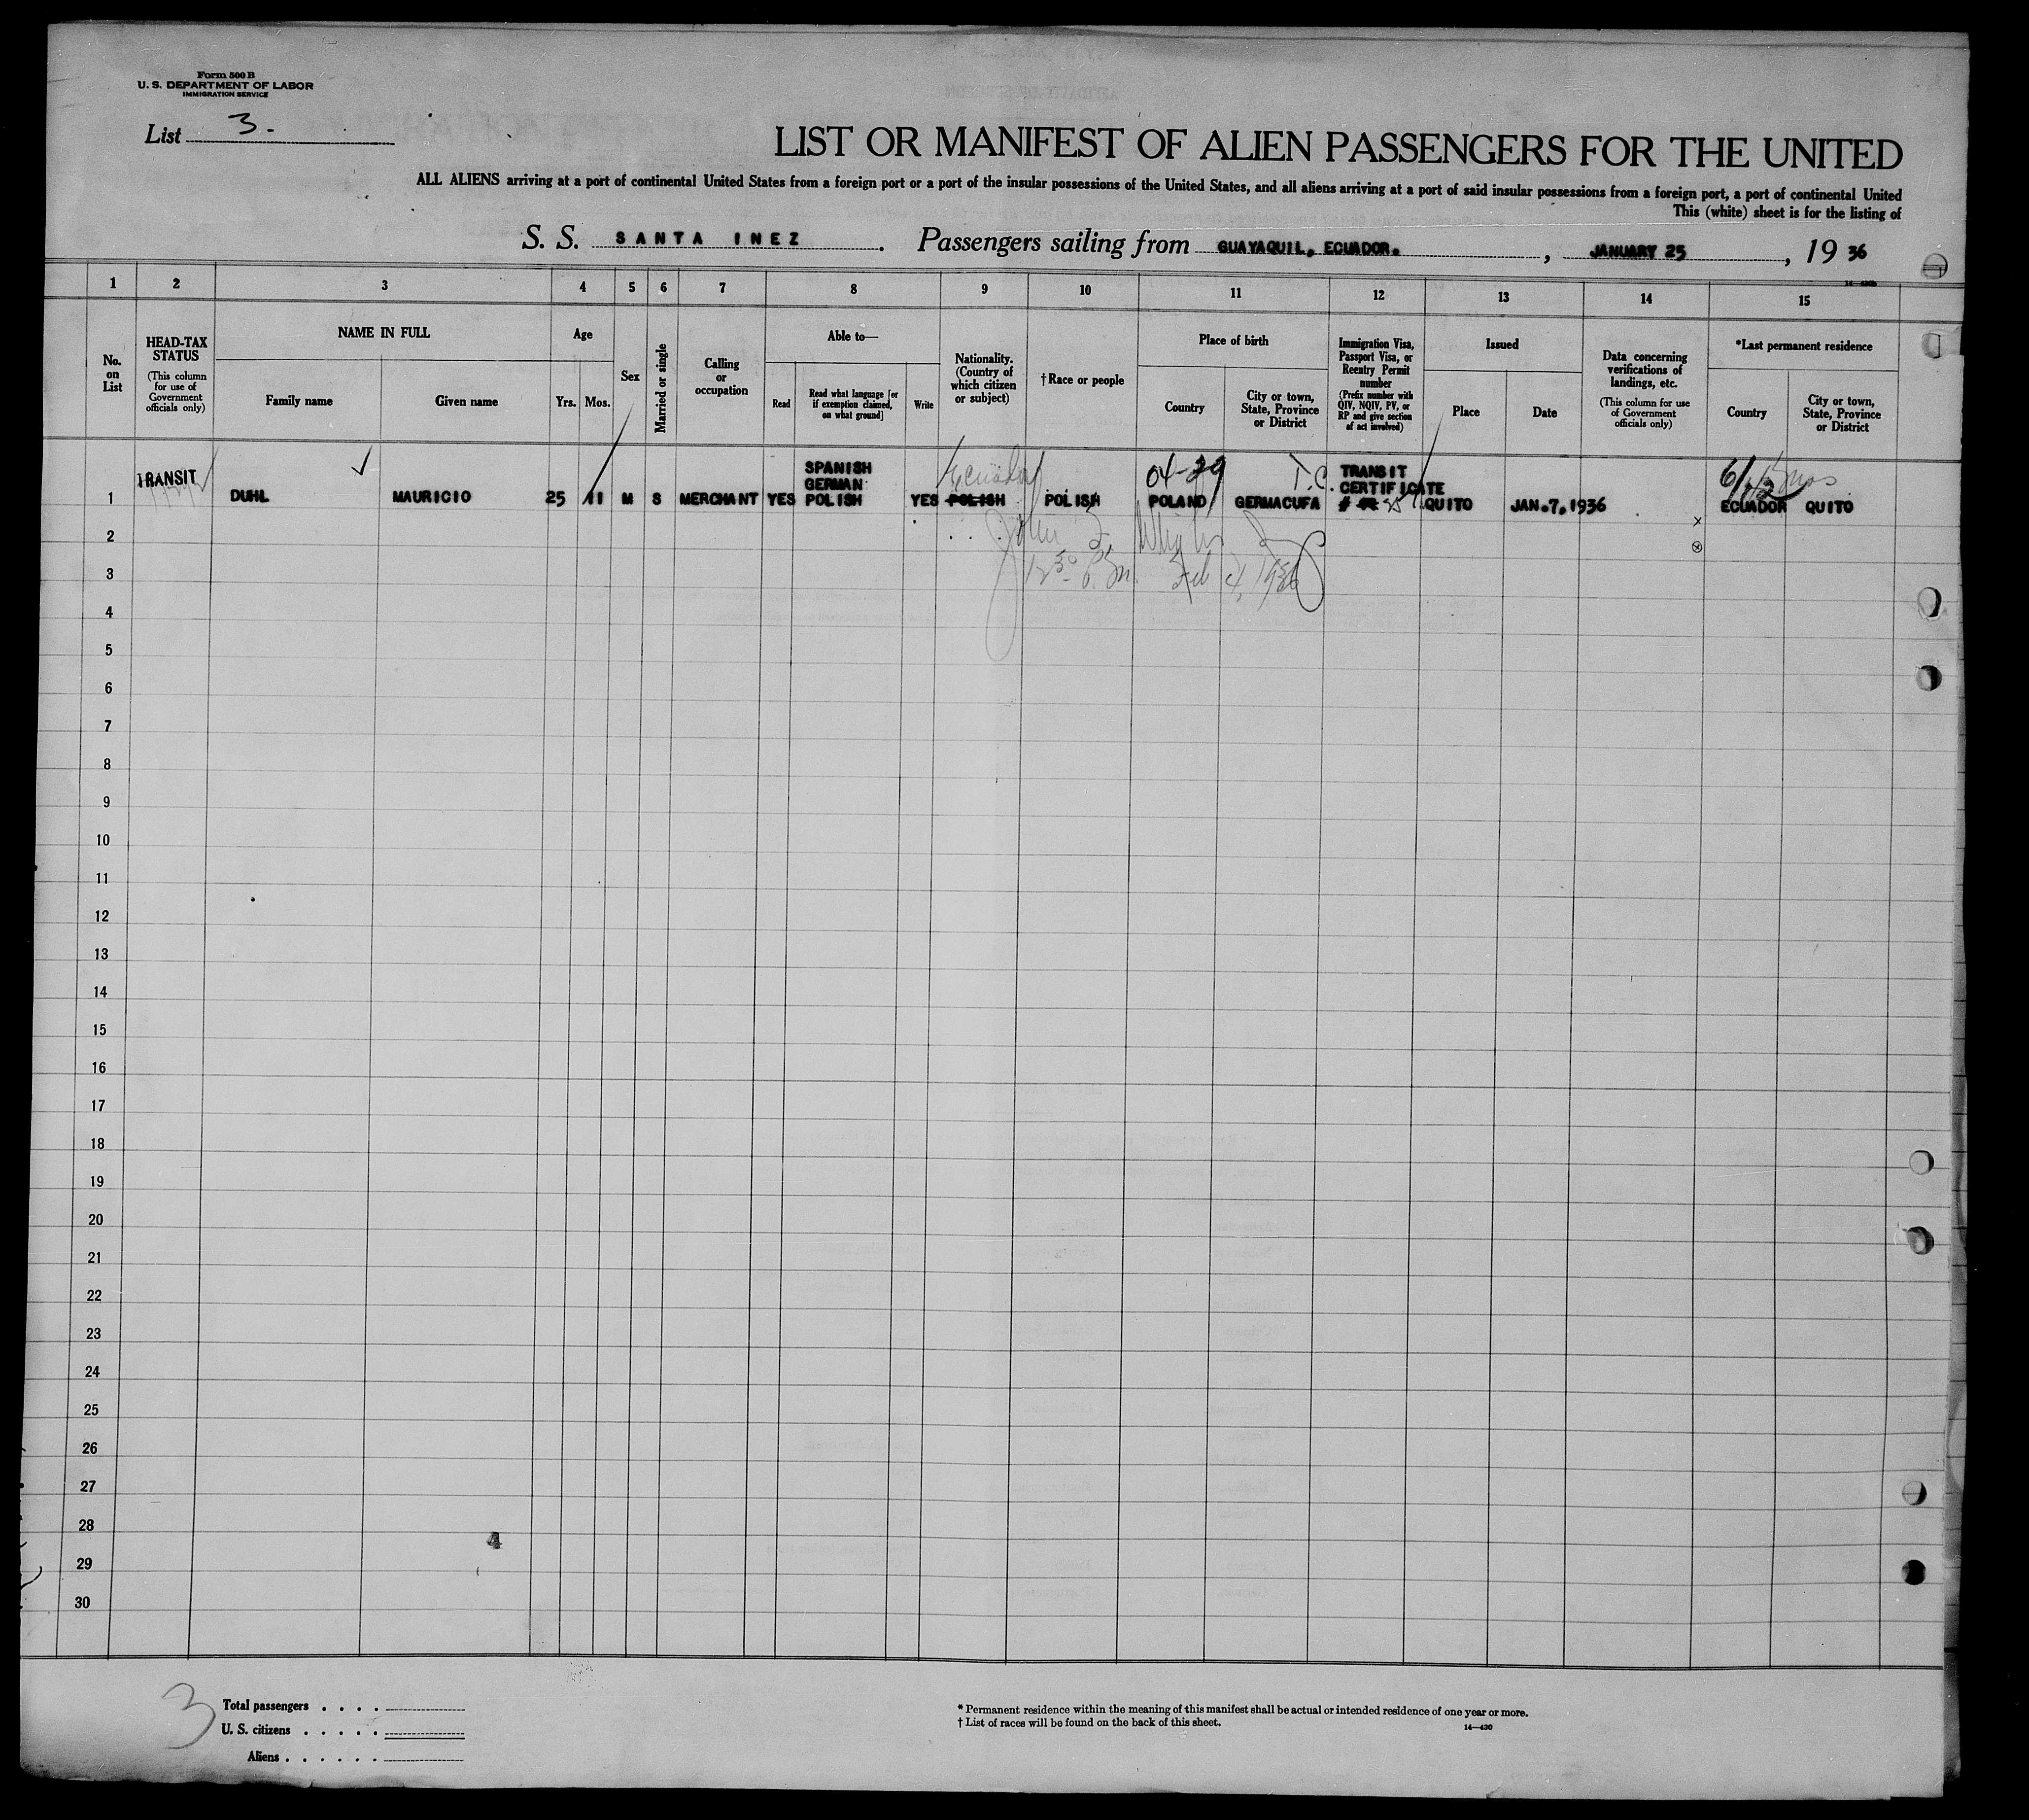 Form 500 B
U. S. DEPARTMENT OF LABOR
IMMIGRATION SERVICE
List 3.
LIST OR MANIFEST OF ALIEN PASSENGERS FOR THE UNITED
ALL ALIENS arriving at a port of continental United States from a foreign port or a port of the insular possessions of the United States, and all aliens arriving at a port of said insular possessions from a foreign port, a port of continental United
This (white) sheet is for the listing of
S. S. SANTA INEZ. Passengers sailing from GUAYAQUIL, ECUADOR., JANUARY 25, 1936
1 2 3 4 5 6 7 8 9 10 11 12 13 14 15
No. on List
HEAD-TAX STATUS
(This column for use of Government officials only)
NAME IN FULL
Family name
Given name
Age
Yrs. Mos.
Sex
Married or single
Calling or occupation
Able to—
Read
Read what language [or if exemption claimed, on what ground]
Write
Nationality. (Country of which citizen or subject)
†Race or people
Place of birth
Country
City or town, State, Province or District
Immigration Visa, Passport Visa, or Reentry Permit number
(Prefix number with QIV, NQIV, PV, or RP and give section of act involved)
Issued
Place
Date
Data concerning verifications of landings, etc.
(This column for use of Government officials only)
*Last permanent residence
Country
City or town, State, Province or District
TRANSIT
SPANISH
GERMAN
Ecuador
04-29
T.C.
TRANSIT
CERTIFICATE
1 DUHL MAURICIO 25 11 M S MERCHANT YES POLISH YES POLISH POLISH POLAND GERMACUFA # QUITO JAN.7,1936 ECUADOR QUITO
x
2
12 30 P.M. Feb 4, 1936
3
4
5
6
7
8
9
10
11
12
13
14
15
16
17
18
19
20
21
22
23
24
25
26
27
28
4
29
30
3
Total passengers . . . .
U. S. citizens . . . . .
Aliens . . . . . .
* Permanent residence within the meaning of this manifest shall be actual or intended residence of one year or more.
† List of races will be found on the back of this sheet.
14—430